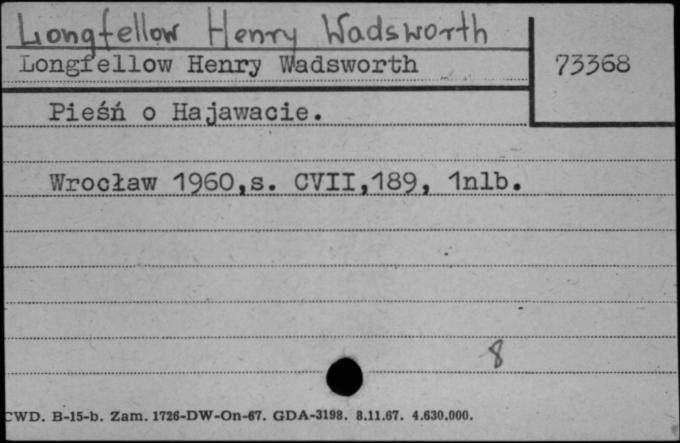 Longfellow Henry Wadsworth
Longfellow Henry Wadsworth
73368
Pieśń o Hajawacie.
Wrocław 1960,s. CVII,189, 1nlb.
8
CWD. B-15-b. Zam. 1726-DW-On-67. GDA-3198. 8.11.67. 4.630.000.